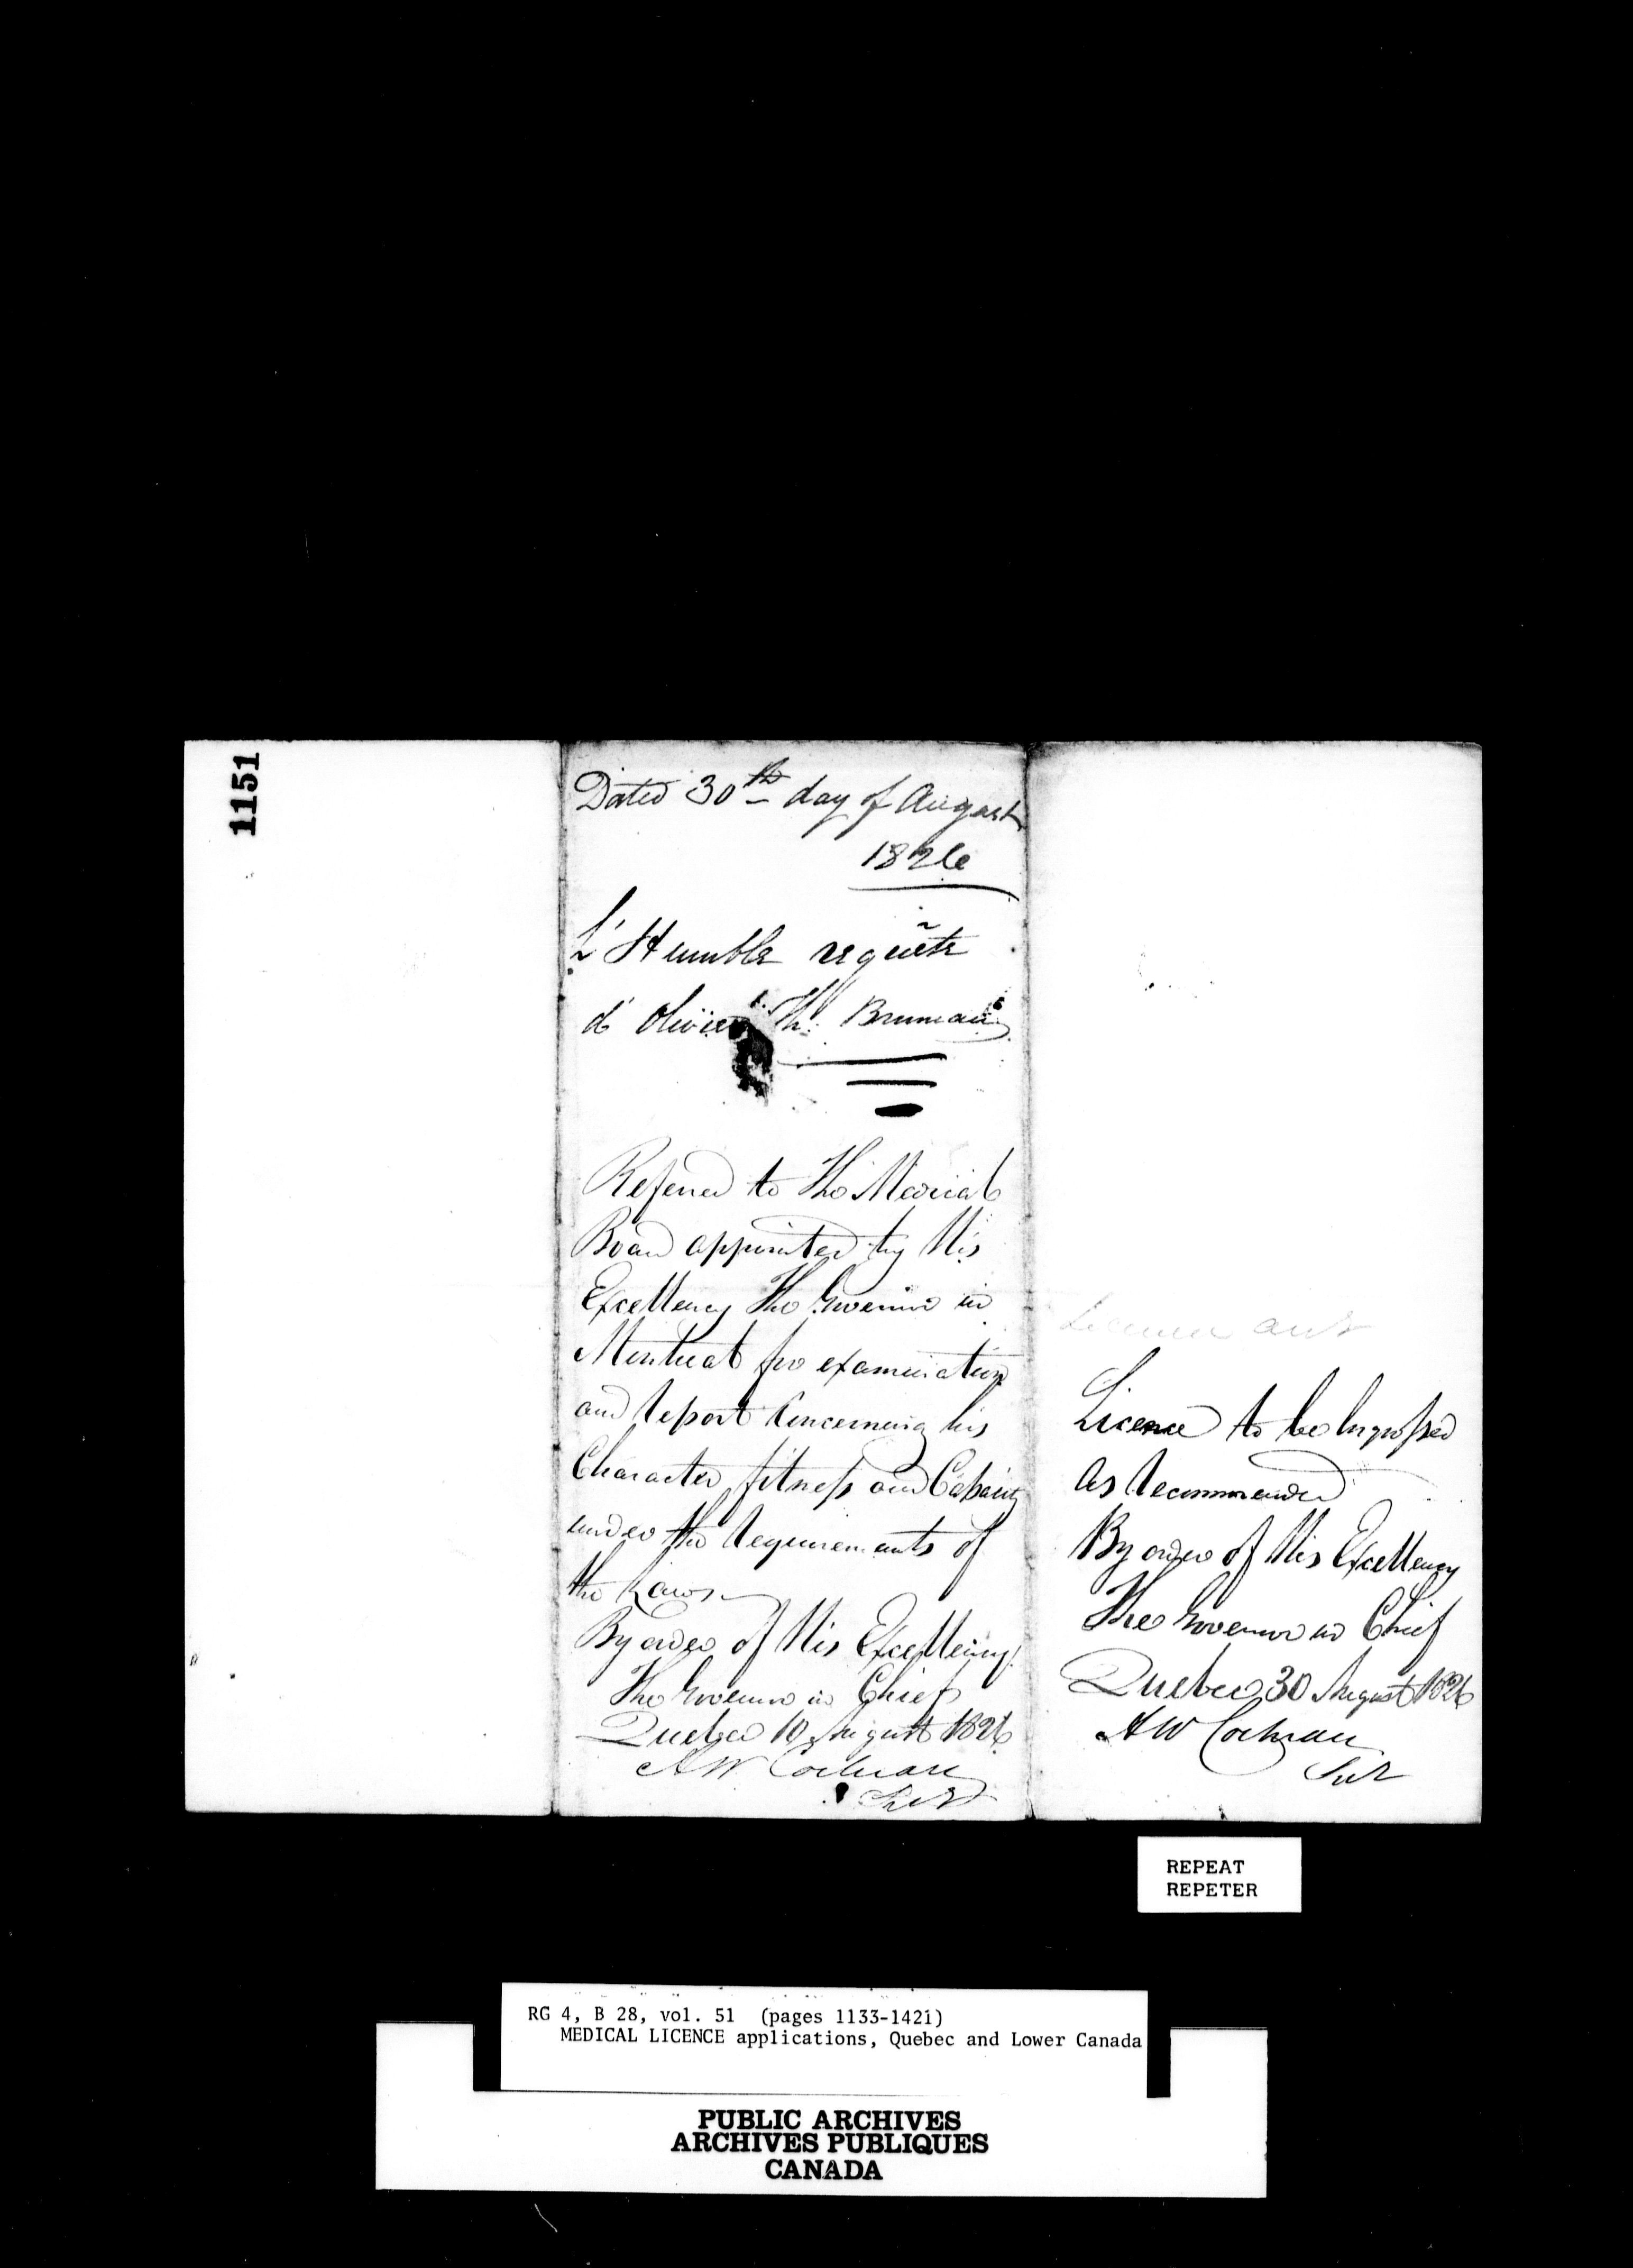 1151
Dated 30th day of August
1826
L'Humble requête
d'Olivier Th: Bruneau
Referred to The Medical
Board appointed by His
Excellency The Governor in
Montreal for examination
and Report Concerning his
Character fitness and Capacity
under the Requirements of
the Laws
By order of His Excellency
The Governor in Chief
Quebec 10 August 1826
A W Cochran
Secy
Licence to be Ingrossed
As Recommended
By order of His Excellency
The Governor in Chief
Quebec 30 August 1826
A W Cochran
REPEAT
REPETER
RG 4, B 28, vol. 51 (pages 1133-1421)
MEDICAL LICENCE applications, Quebec and Lower Canada
PUBLIC ARCHIVES
ARCHIVES PUBLIQUES
CANADA